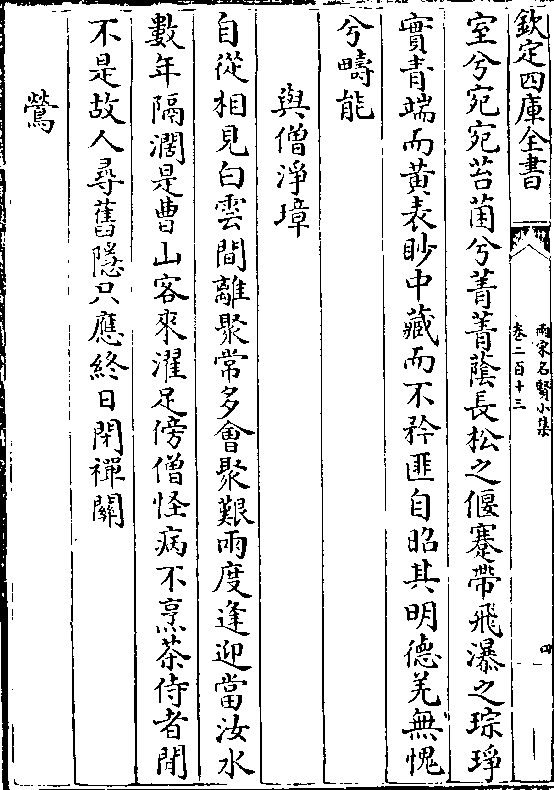 欽定四庫全書
兩宋名賢小集
卷二百十三
四
室兮宛宛苔菌兮菁菁蔭長松之偃蹇帶飛瀑之琮琤
實青端而黃表眇中藏而不矜匪自昭其明德羌無愧
兮疇能
與僧淨璋
自從相見白雲間離聚常多會聚艱兩度逢迎當汝水
數年隔濶是曹山客來濯足傍僧怪病不烹茶侍者閒
不是故人尋舊隱只應終日閉禪關
鶯